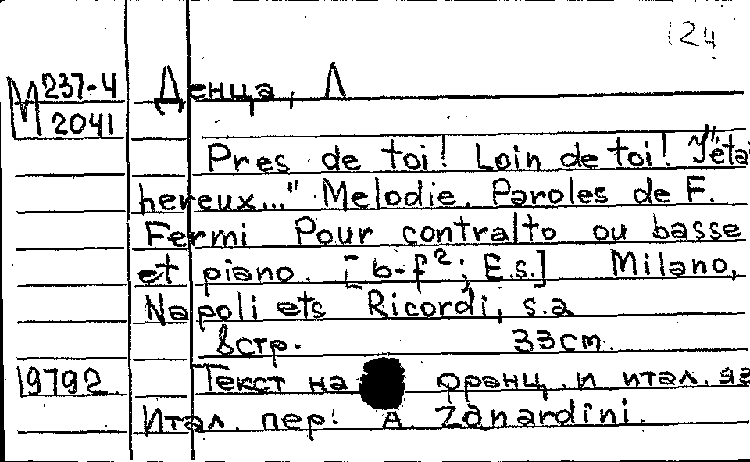 124
М 237-4
2041
Денца, Л
Pres de toi! Loin de toi! "J'étai
hereux..." Melodie. Paroles de F.
Fermi Pour contralto ou basse
et piano. [b-f²; E.s.] Milano,
Napoli ets Ricordi, s.a
8 стр. 33 cm.
19792 Текст на франц. и итал. яз
Итал. пер. A. Zanardini.